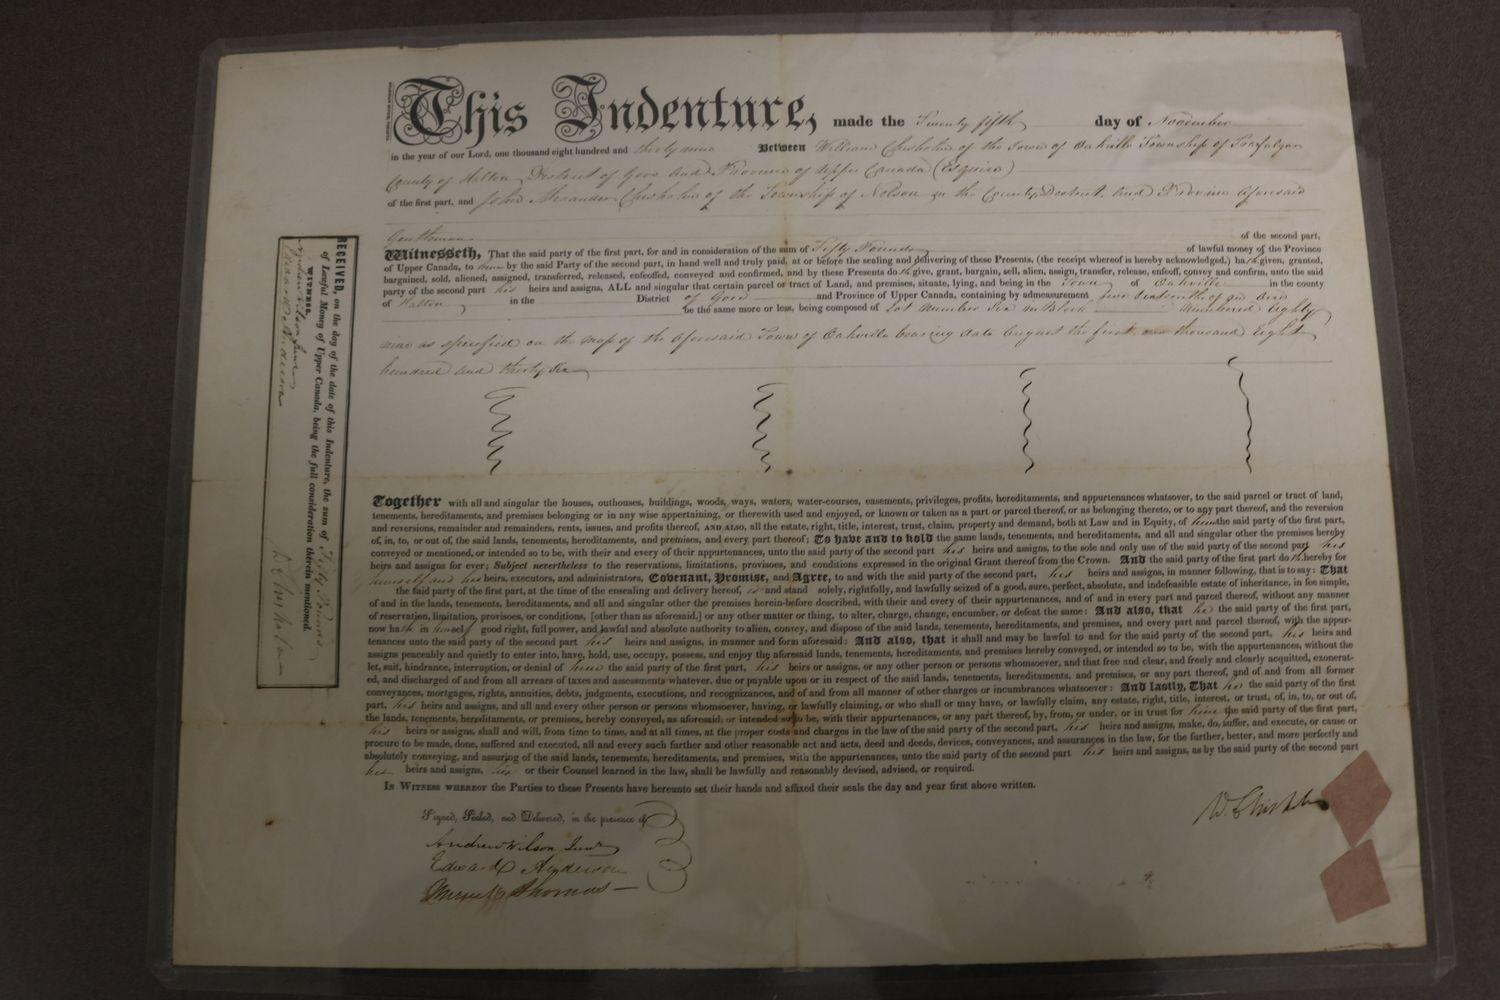 This Indenture, made the Twenty fifth day of November
in the year of our Lord, one thousand eight hundred and thirty nine Between William Chisholm of the Town of Oakville Township of Trafalgar
County of Halton District of Gore and Province of Upper Canada (Esquire)
of the first part, and John Alexander Chisholm of the Township of Nelson in the County, District and Province Aforesaid
Gentleman of the second part,
Witnesseth, That the said party of the first part, for and in consideration of the sum of Fifty Pounds of lawful money of the Province
of Upper Canada, to him by the said Party of the second part, in hand well and truly paid, at or before the sealing and delivering of these Presents, (the receipt whereof is hereby acknowledged,) hath given, granted,
bargained, sold, aliened, assigned, transferred, released, enfeoffed, conveyed and confirmed, and by these Presents doth give, grant, bargain, sell, alien, assign, transfer, release, enfeoff, convey and confirm, unto the said
party of the second part his heirs and assigns, ALL and singular that certain parcel or tract of Land, and premises, situate, lying, and being in the Town of Oakville in the county
of Halton in the District of Gore and Province of Upper Canada, containing by admeasurement of an Acre
be the same more or less, being composed of Lot Number Six in Block Numbered Eighty
nine as specified on the map of the Aforesaid Town of Oakville bearing date August the first one thousand Eight
hundred and thirty six
Together with all and singular the houses, outhouses, buildings, woods, ways, waters, water-courses, easements, privileges, profits, hereditaments, and appurtenances whatsover, to the said parcel or tract of land,
tenements, hereditaments, and premises belonging or in any wise appertaining, or therewith used and enjoyed, or known or taken as a part or parcel thereof, or as belonging thereto, or to any part thereof, and the reversion
and reversions, remainder and remainders, rents, issues, and profits thereof, AND ALSO, all the estate, right, title, interest, trust, claim, property and demand, both at Law and in Equity, of him the said party of the first part,
of, in, to, or out of, the said lands, tenements, hereditaments, and premises, and every part thereof; To have and to hold the same lands, tenements, and hereditaments, and all and singular other the premises hereby
conveyed or mentioned, or intended so to be, with their and every of their appurtenances, unto the said party of the second part his heirs and assigns, to the sole and only use of the said party of the second part his
heirs and assigns for ever; Subject nevertheless to the reservations, limitations, provisoes, and conditions expressed in the original Grant thereof from the Crown. And the said party of the first part doth hereby for
himself and his heirs, executors, and administrators, Covenant, Promise, and Agree, to and with the said party of the second part, his heirs and assigns, in manner following, that is to say: That
the said party of the first part, at the time of the ensealing and delivery hereof, is and stand solely, rightfully, and lawfully seized of a good, sure, perfect, absolute, and indefeasible estate of inheritance, in fee simple,
of and in the lands, tenements, hereditaments, and all and singular other the premises herein-before described, with their and every of their appurtenances, and of and in every part and parcel thereof, without any manner
of reservation, limitation, provisoes, or conditions, [other than as aforesaid,] or any other matter or thing, to alter, charge, change, encumber, or defeat the same: And also, that he the said party of the first part,
now hath in himself good right, full power, and lawful and absolute authority to alien, convey, and dispose of the said lands, tenements, hereditaments, and premises, and every part and parcel thereof, with the appur-
tenances unto the said party of the second part his heirs and assigns, in manner and form aforesaid: And also, that it shall and may be lawful to and for the said party of the second part, his heirs and
assigns peaceably and quietly to enter into, have, hold, use, occupy, possess, and enjoy the aforesaid lands, tenements, hereditaments, and premises hereby conveyed, or intended so to be, with the appurtenances, without the
let, suit, hindrance, interruption, or denial of him the said party of the first part, his heirs or assigns, or any other person or persons whomsoever, and that free and clear, and freely and clearly acquitted, exonerat-
ed, and discharged of and from all arrears of taxes and assessments whatever. due or payable upon or in respect of the said lands, tenements, hereditaments, and premises, or any part thereof, and of and from all former
conveyances, mortgages, rights, annuities, debts, judgments, executions, and recognizances, and of and from all manner of other charges or incumbrances whatsoever: And lastly, That he the said party of the first
part, his heirs and assigns, and all and every other person or persons whomsoever, having, or lawfully claiming, or who shall or may have, or lawfully claim, any estate, right, title, interest, or trust, of, in, to, or out of,
the lands, tenements, hereditaments, or premises, hereby conveyed, as aforesaid, or intended so to be, with their appurtenances, or any part thereof, by, from, or under, or in trust for him the said party of the first part,
his heirs or assigns, shall and will, from time to time, and at all times, at the proper costs and charges in the law of the said party of the second part, his heirs and assigns, make, do, suffer, and execute, or cause or
procure to be made, done, suffered and executed, all and every such further and other reasonable act and acts, deed and deeds, devices, conveyances, and assurances in the law, for the further, better, and more perfectly and
absolutely conveying, and assuring of the said lands, tenements, hereditaments, and premises, with the appurtenances, unto the said party of the second part his heirs and assigns, as by the said party of the second part
his heirs and assigns, his or their Counsel learned in the law, shall be lawfully and reasonably devised, advised, or required.
IN WITNESS WHEREOF the Parties to these Presents have hereunto set their hands and affixed their seals the day and year first above written.
Signed, Sealed, and Delivered, in the presence of
W. Chisholm
Andrew Wilson Junr
Edward Anderson
Thomas
RECEIVED, on the day of the date of this Indenture, the sum of Fifty Pounds
of Lawful Money of Upper Canada, being the full consideration therein mentioned.
WITNESS,
Andrew Wilson Junr
Edward Anderson
W. Chisholm